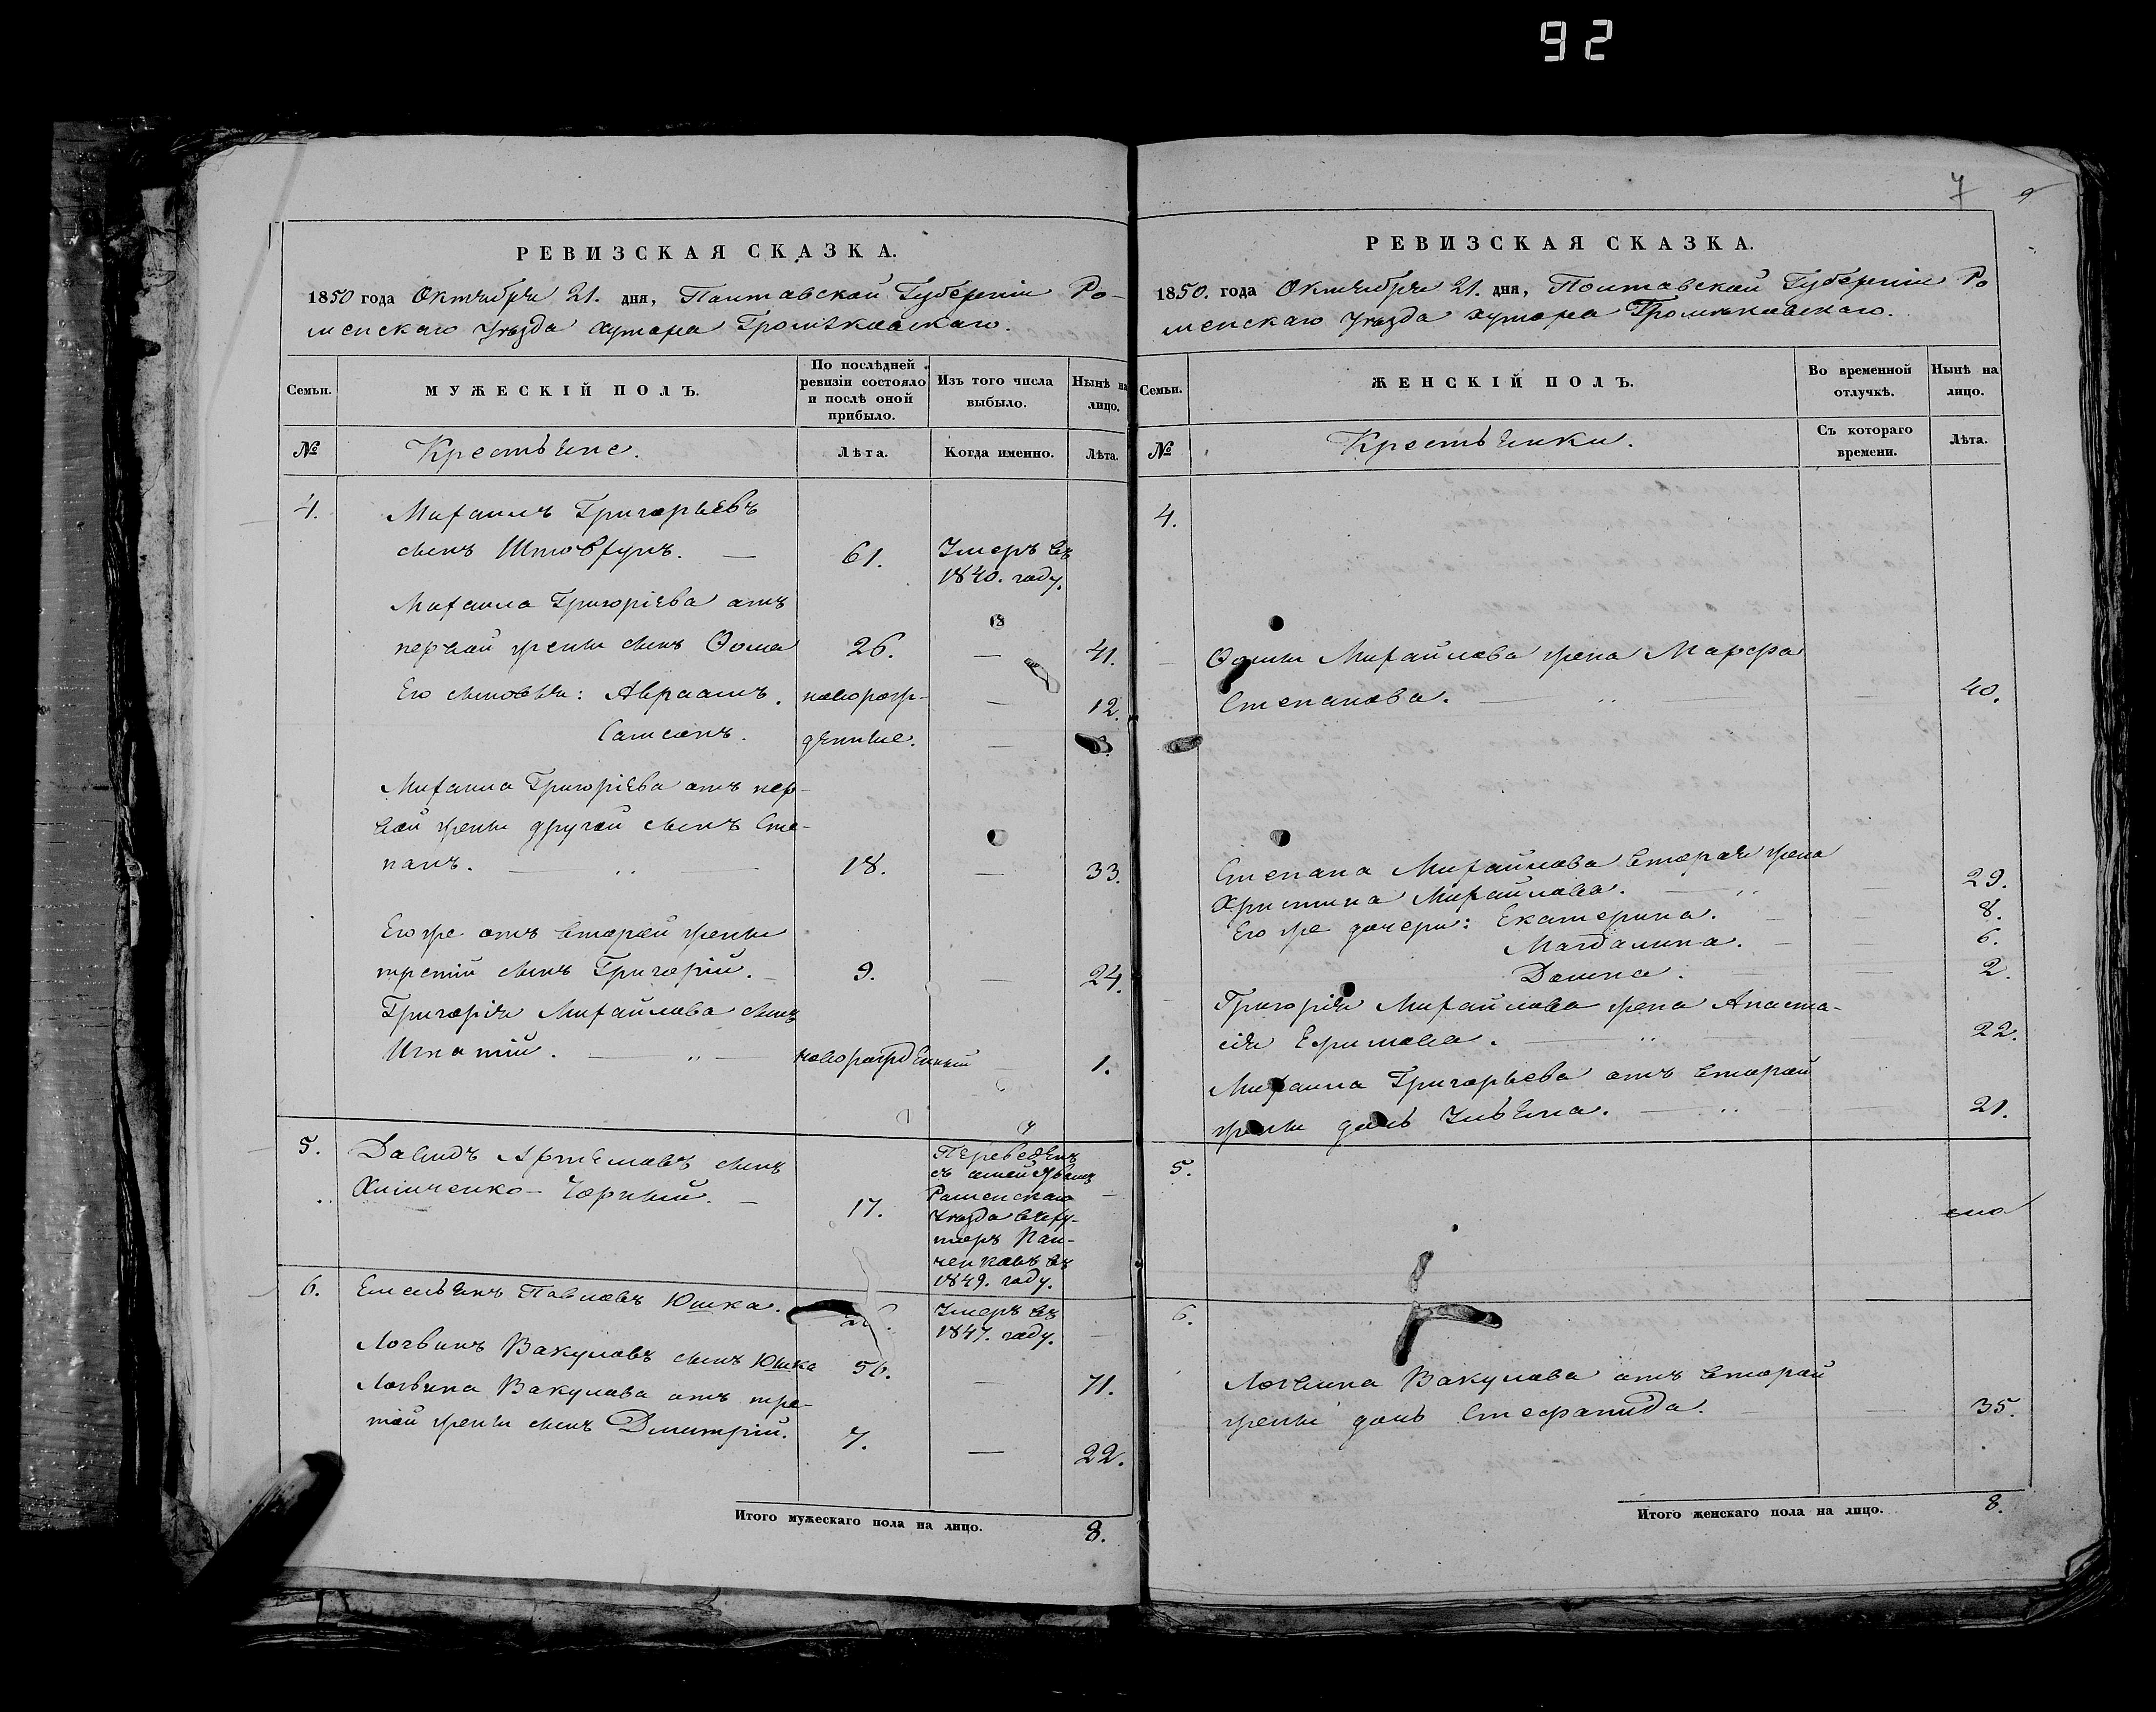 92
7
РЕВИЗСКАЯ СКАЗКА.
1850 года Октября 21. дня, Полтавской Губерніи Ро-
менскаго Уѣзда хутора
Семьи.
МУЖЕСКІЙ ПОЛЪ.
По послѣдней
ревизіи состояло
и послѣ оной
прибыло.
Изъ того числа
выбыло.
Нынѣ на
лицо.
№
Крестьяне.
Лѣта.
Когда именно.
Лѣта.
4.
Михаилъ Григорьевъ
сынъ
61.
Умеръ въ
1840. году.
Михаила Григоріева отъ
первой жены сынъ Ѳома
26.
—
41.
Его сыновья: Авраамъ.
новорож-
—
12.
Самсонъ.
денные.
—
Михаила Григоріева отъ пер-
вой жены другой сынъ Сте-
панъ.
18.
—
33.
Его же отъ второй жены
третій сынъ Григорій.
9.
—
24.
Григорія Михайлова сынъ
Игнатій.
новорожденный
1.
5.
Давидъ Артемовъ сынъ
Чорный.
17.
Переведенъ
съ семействомъ
Роменскаго
Уѣзда въ ху-
торъ Пан-
ченковъ въ
1849. году.
6.
Емельянъ Павловъ Юшка.
Умеръ въ
1847. году.
Логвинъ Вакуловъ сынъ Юшка
56.
—
71.
Логвина Вакулова отъ тре-
тей жены сынъ Дмитрій.
7.
—
22.
Итого мужескаго пола на лицо.
8.
РЕВИЗСКАЯ СКАЗКА.
1850. года Октября 21. дня, Полтавской Губерніи Ро
менскаго Уѣзда хутора
Семьи.
ЖЕНСКІЙ ПОЛЪ.
Во временной
отлучкѣ.
Нынѣ на
лицо.
№
Крестьянки.
Съ котораго
времени.
Лѣта.
4.
Ѳомы Михайлова жена Марфа
Степанова.
—
40.
Степана Михайлова вторая жена
Христина Михайлова.
29.
Его же дочери: Екатерина.
8.
Магдалина.
6.
Домна.
2.
Григорія Михайлова жена Анаста-
сія Ефимова.
22.
Михаила Григорьева отъ второй
жены дочь Ульяна.
21.
5.
6.
Логвина Вакулова отъ второй
жены дочь Стефанида.
—
35.
Итого женскаго пола на лицо.
8.